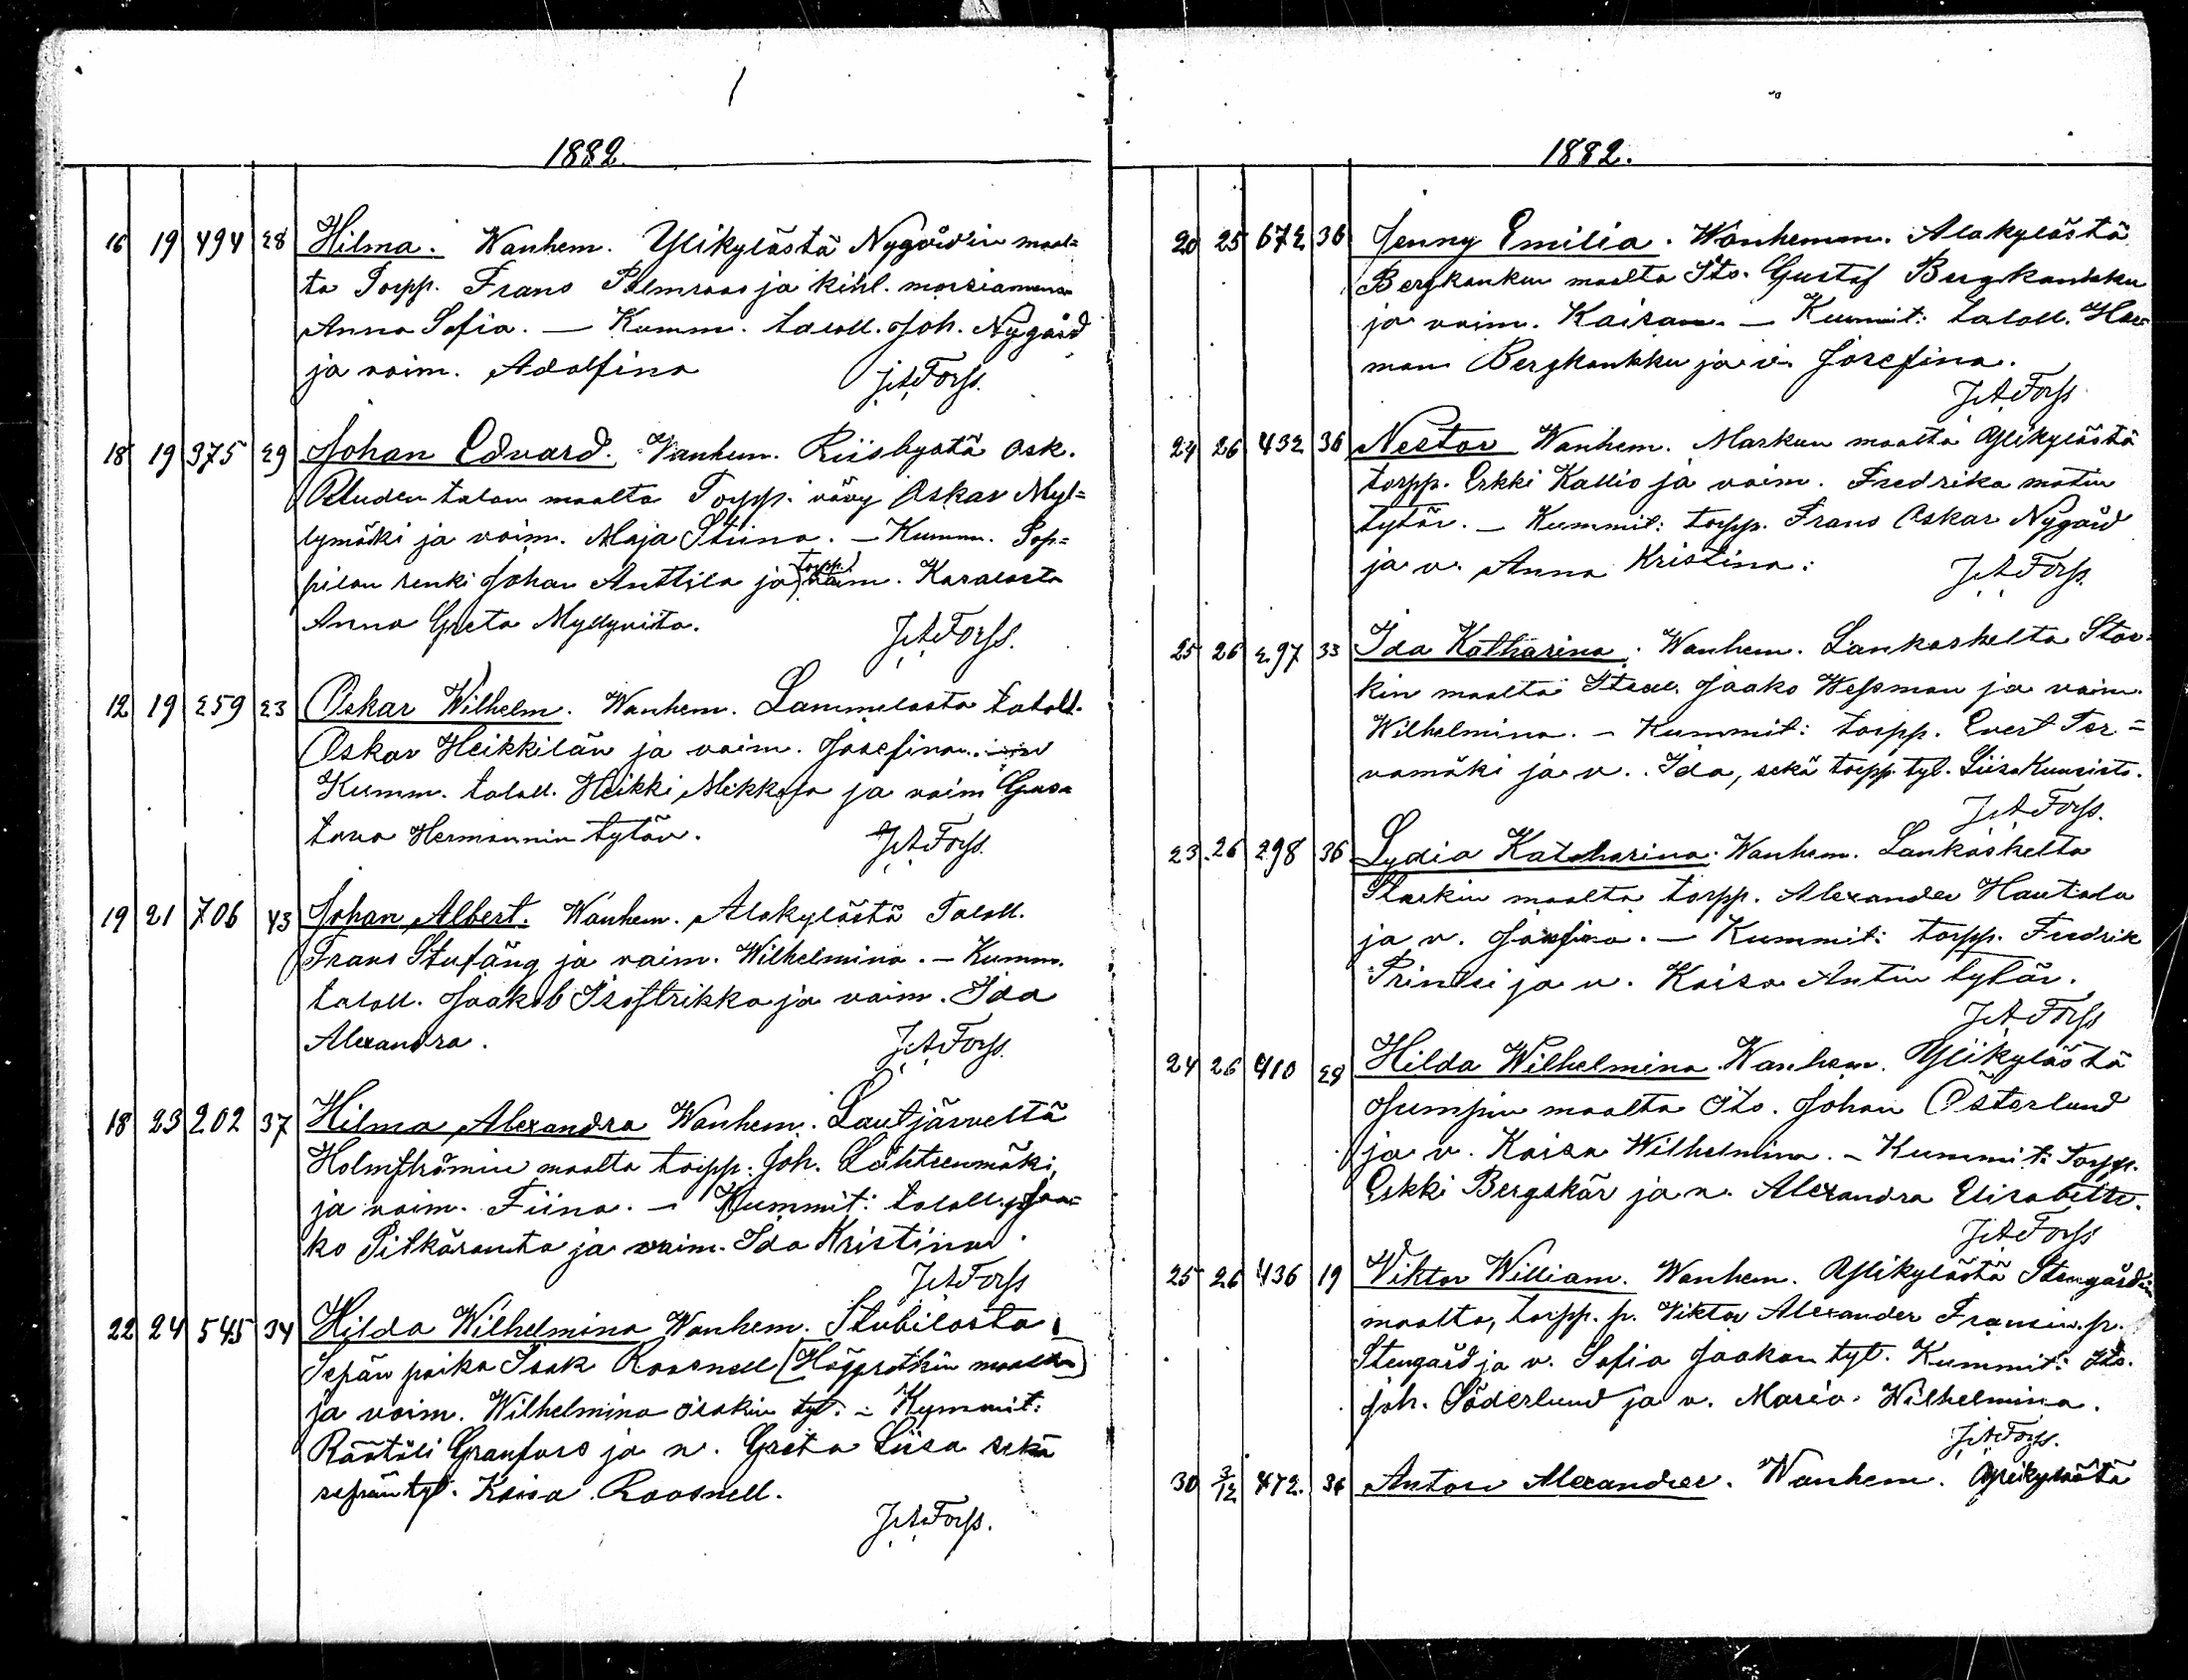 1882.
16 19 494 28 Hilma. Wanhem. Ylikylästä Nygårdin maal=
ta Torpp. Frans Palmroos ja kihl. morsiamensa
Anna Sofia. — Kumm. taloll. Joh. Nygård
ja vaim. Adolfina
JAForss.
18 19 375 29 Johan Edvard. Wanhem. Riisbystä Osk.
talon maalta Torpp. vävy Oskar Myl=
lymäki ja vaim. Maja Stiina. — Kumm. Sep=
pilän renki Johan Anttila ja torpp. vaim. Karalasta
Anna Greta Myllyviita.
JAForss.
12 19 259 23 Oskar Wilhelm. Wanhem. Lammelasta taloll.
Oskar Heikkilän ja vaim. Josefina.
Kumm. taloll. Heikki Mikkola ja vaim Gus=
tava Hermannin tytär.
JAForss.
19 21 706 43 Johan Albert. Wanhem. Alakylästä Taloll.
Frans Stufäng ja vaim. Wilhelmina. — Kumm.
taloll. Jaakob Isostrikka ja vaim. Ida
Alexandra.
JAForss.
18 23 202 37 Hilma Alexandra Wanhem. Lautjärveltä
Holmströmin maalta torpp. Joh. Lähteenmäki,
ja vaim. Fiina. — Kummit: taloll. Jaa=
ko Pitkäranta ja vaim. Ida Kristina.
JAForss
22 24 545 34 Hilda Wilhelmina Wanhem. Stubilasta
Sepän poika Isak Roosnell (maalta)
ja vaim. Wilhelmina Isakin tyt. – Kummit:
Räätäli Granfors ja v. Greta Liisa sekä
sepän tyt. Kaisa Roosnell.
JAForss.
1882.
20 25 672 36 Jenny Emilia. Wanhemm. Alakylästä
Bergkaukun maalta Its. Gustaf Bergkaukku
ja vaim. Kaisa. — Kummit: taloll. Her=
man Bergkaukku ja v. Josefina.
JAForss
24 26 432 36 Nestor Wanhem. Markun maalta Ylikylästä
torpp. Erkki Kallio ja vaim. Fredrika matin
tytär. — Kummit: torpp. Frans Oskar Nygård
ja v. Anna Kristina.
JAForss.
25 26 297 33 Ida Katharina. Wanhem. Lankoskelta Stor=
kin maalta Jaako Wessman ja vaim.
Wilhelmina. — Kummit: torpp. Evert Ter=
vamäki ja v. Ida, sekä torpp. tyt. Liisa Kuusisto.
JAForss.
23 26 298 36 Lydia Katharina. Wanhem. Lankoskelta
Storkin maalta torpp. Alexander Hautala
ja v. Josefina. — Kummit: torpp. Fredrik
Printsi ja v. Kaisa Antin tytär.
JAForss
24 26 410 29 Hilda Wilhelmina Wanhem. Ylikylästä
Jumpin maalta Its. Johan Österlund
ja v. Kaisa Wilhelmina. — Kummit: Torpp.
Erkki Bergskär ja v. Alexandra Elisabetta.
JAForss
25 26 436 19 Viktor William. Wanhem. Ylikylästä Stengårdin
maalta, torpp. p. Viktor Alexander Fransin p.
Stengård ja v. Sofia Jaakon tyt. Kummit: Its.
Joh. Söderlund ja v. Maria Wilhelmina.
JAForss.
30 3/12 472. 36 Anton Alexander. Wanhem. Ylikylästä